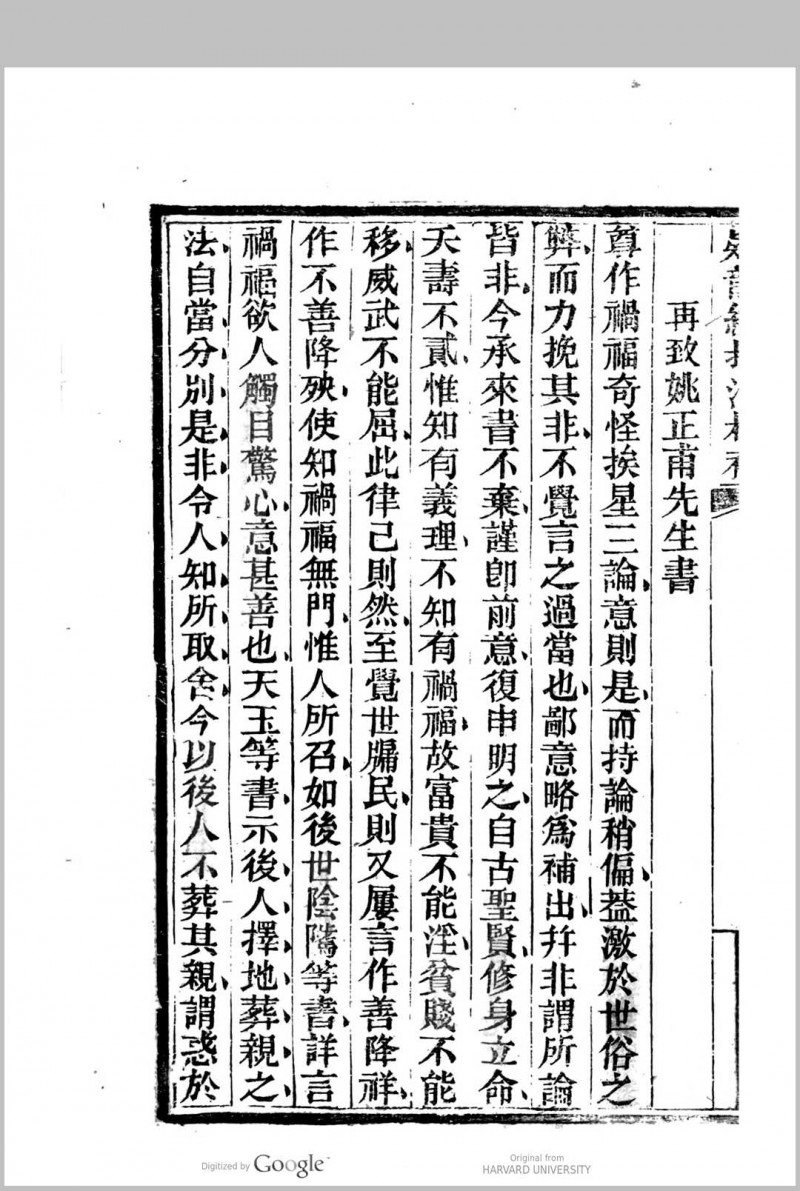 再致姚正甫先生書
尊作禍福奇怪挨星三論、意則是、而持論稍偏、葢激於世俗之
弊、而力挽其非、不覺言之過當也、鄙意略爲補出、幷非謂所論
皆非、今承來書不棄、謹卽前意、復申明之、自古聖賢、修身立命、
夭壽不貳、惟知有義理、不知有禍福、故富貴不能淫、貧賤不能
移、威武不能屈、此律己則然、至覺世牖民、則又屢言作善降祥、
作不善降殃、使知禍福無門、惟人所召、如後世陰隲等書、詳言
禍福、欲人觸目驚心、意甚善也、天玉等書、示後人、擇地葬親之
法、自當分別是非、令人知所取舍、今以後人不葬其親、謂惑於
Digitized by Google
Original from
HARVARD UNIVERSITY